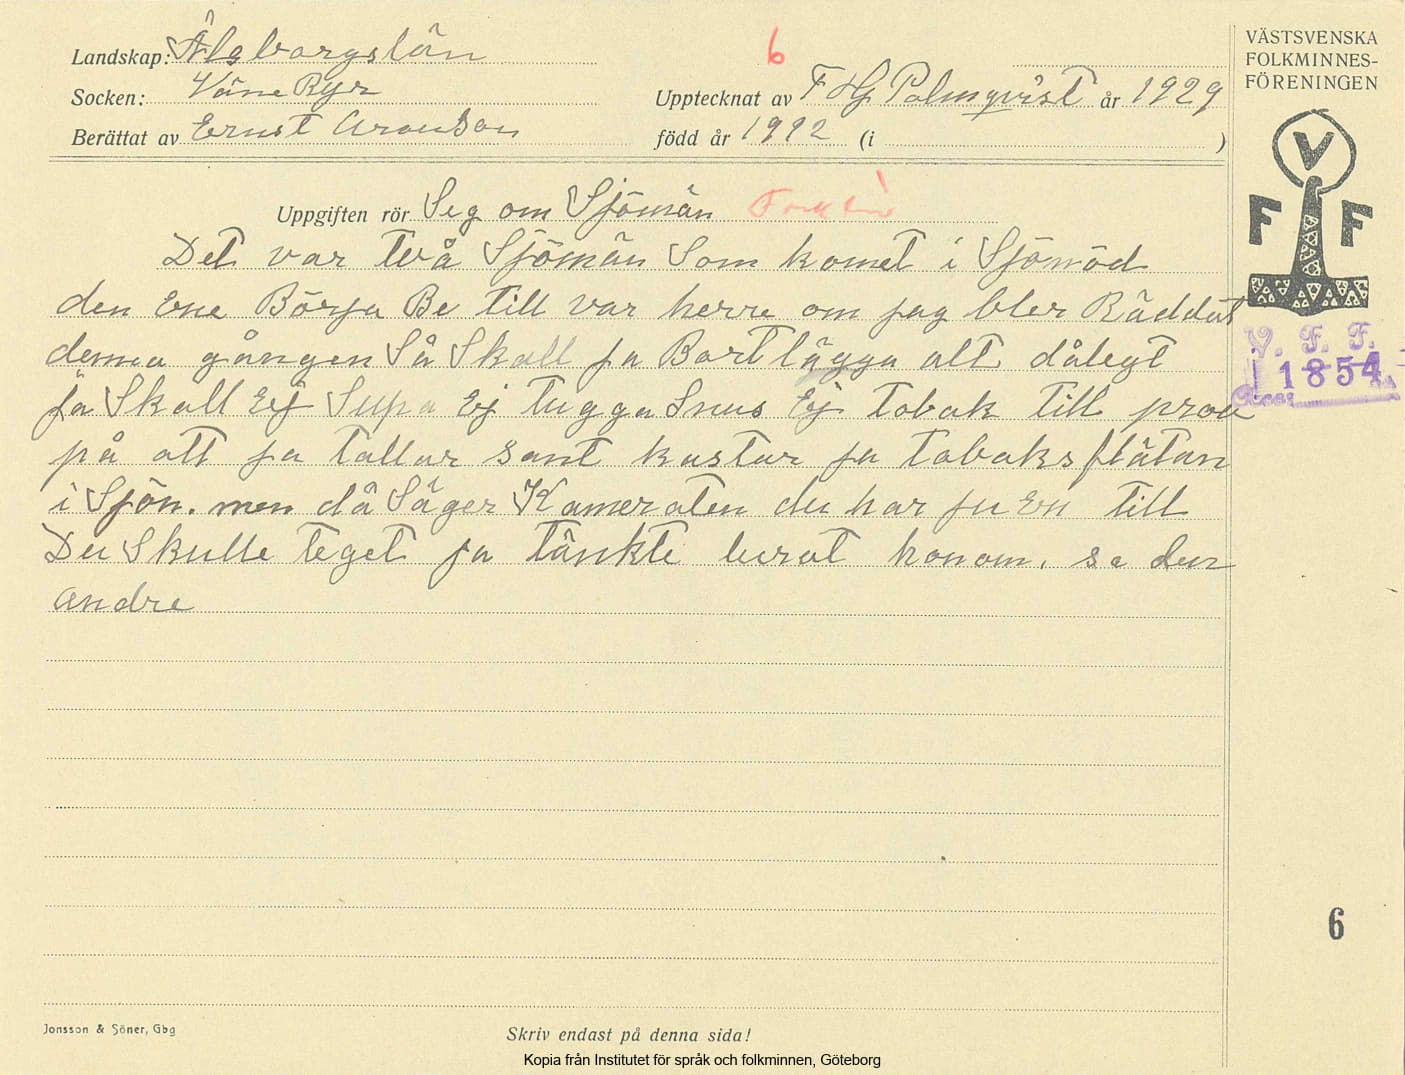 Landskap: Älgborgslän
6
Socken: Väne Ryr
Upptecknat av F Hg Palmqvist år 1929
Berättat av Ernst Aronson
född år 1912 (i )
VÄSTSVENSKA
FOLKMINNES-
FÖRENINGEN
V
F F
Uppgiften rör Seg om Sjömän
Det var två Sjömän Som komet i Sjönöd
den ene Börja Be till var herre om jag bler Räddat
denna gången Så Skall ja Bortlägga alt dålegt
ja Skall Ej Supa Ej tugga Snus Ej tobak till prov
på att ja tallar sant kastar ja tobaksflätan
i Sjön. men då Säger Kameraten du har ju En till
Du Skulle teget ja tänkte lurat honom. sa den
andre
V. F. F.
1854
6
Jonsson & Söner, Gbg
Skriv endast på denna sida!
Kopia från Institutet för språk och folkminnen, Göteborg